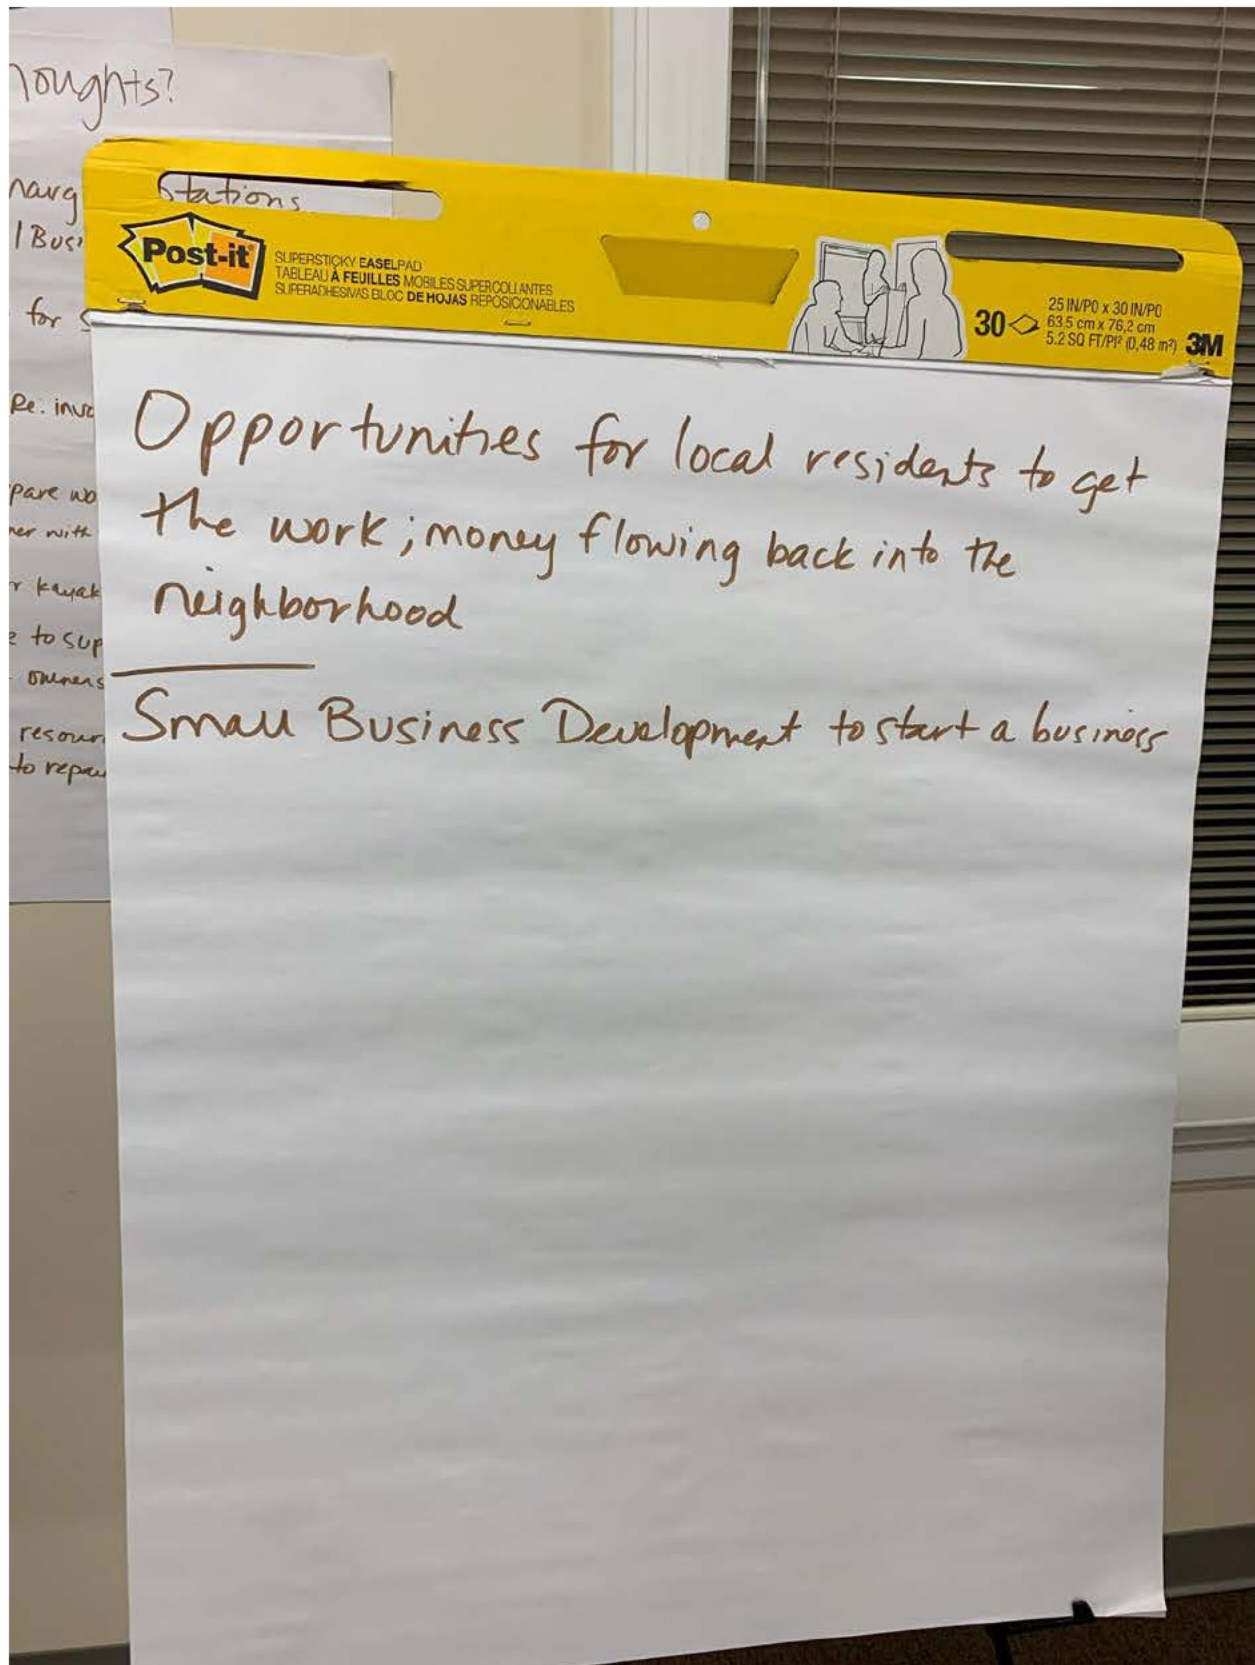 thoughts?
Stations
for
Re:
with
kayak
to sup
owners
to
Post-it
SUPERSTICKY EASELPAD
TABLEAU À FEUILLES MOBILES SUPERCOLLANTES
SUPERADHESIVAS BLOC DE HOJAS REPOSICIONABLES
30
25 IN/PO x 30 IN/PO
63,5 cm x 76,2 cm
5.2 SQ FT/PI² (0,48 m²)
3M
Opportunities for local residents to get
the work; money flowing back into the
neighborhood
Small Business Development to start a business